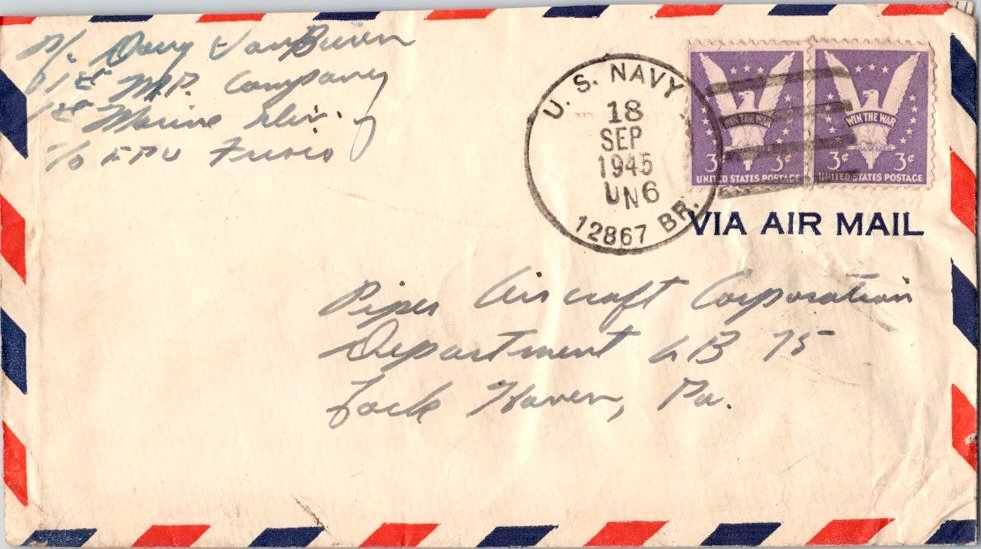 VanBuren
M.P. Company
Marine Div.
c/o FPO Frisco
U. S. NAVY
18
SEP
1945
UN6
12867 BR.
WIN THE WAR
3¢ 3¢
UNITED STATES POSTAGE
WIN THE WAR
3¢ 3¢
UNITED STATES POSTAGE
VIA AIR MAIL
Piper Aircraft Corporation
Department LB 75
Lock Haven, Pa.